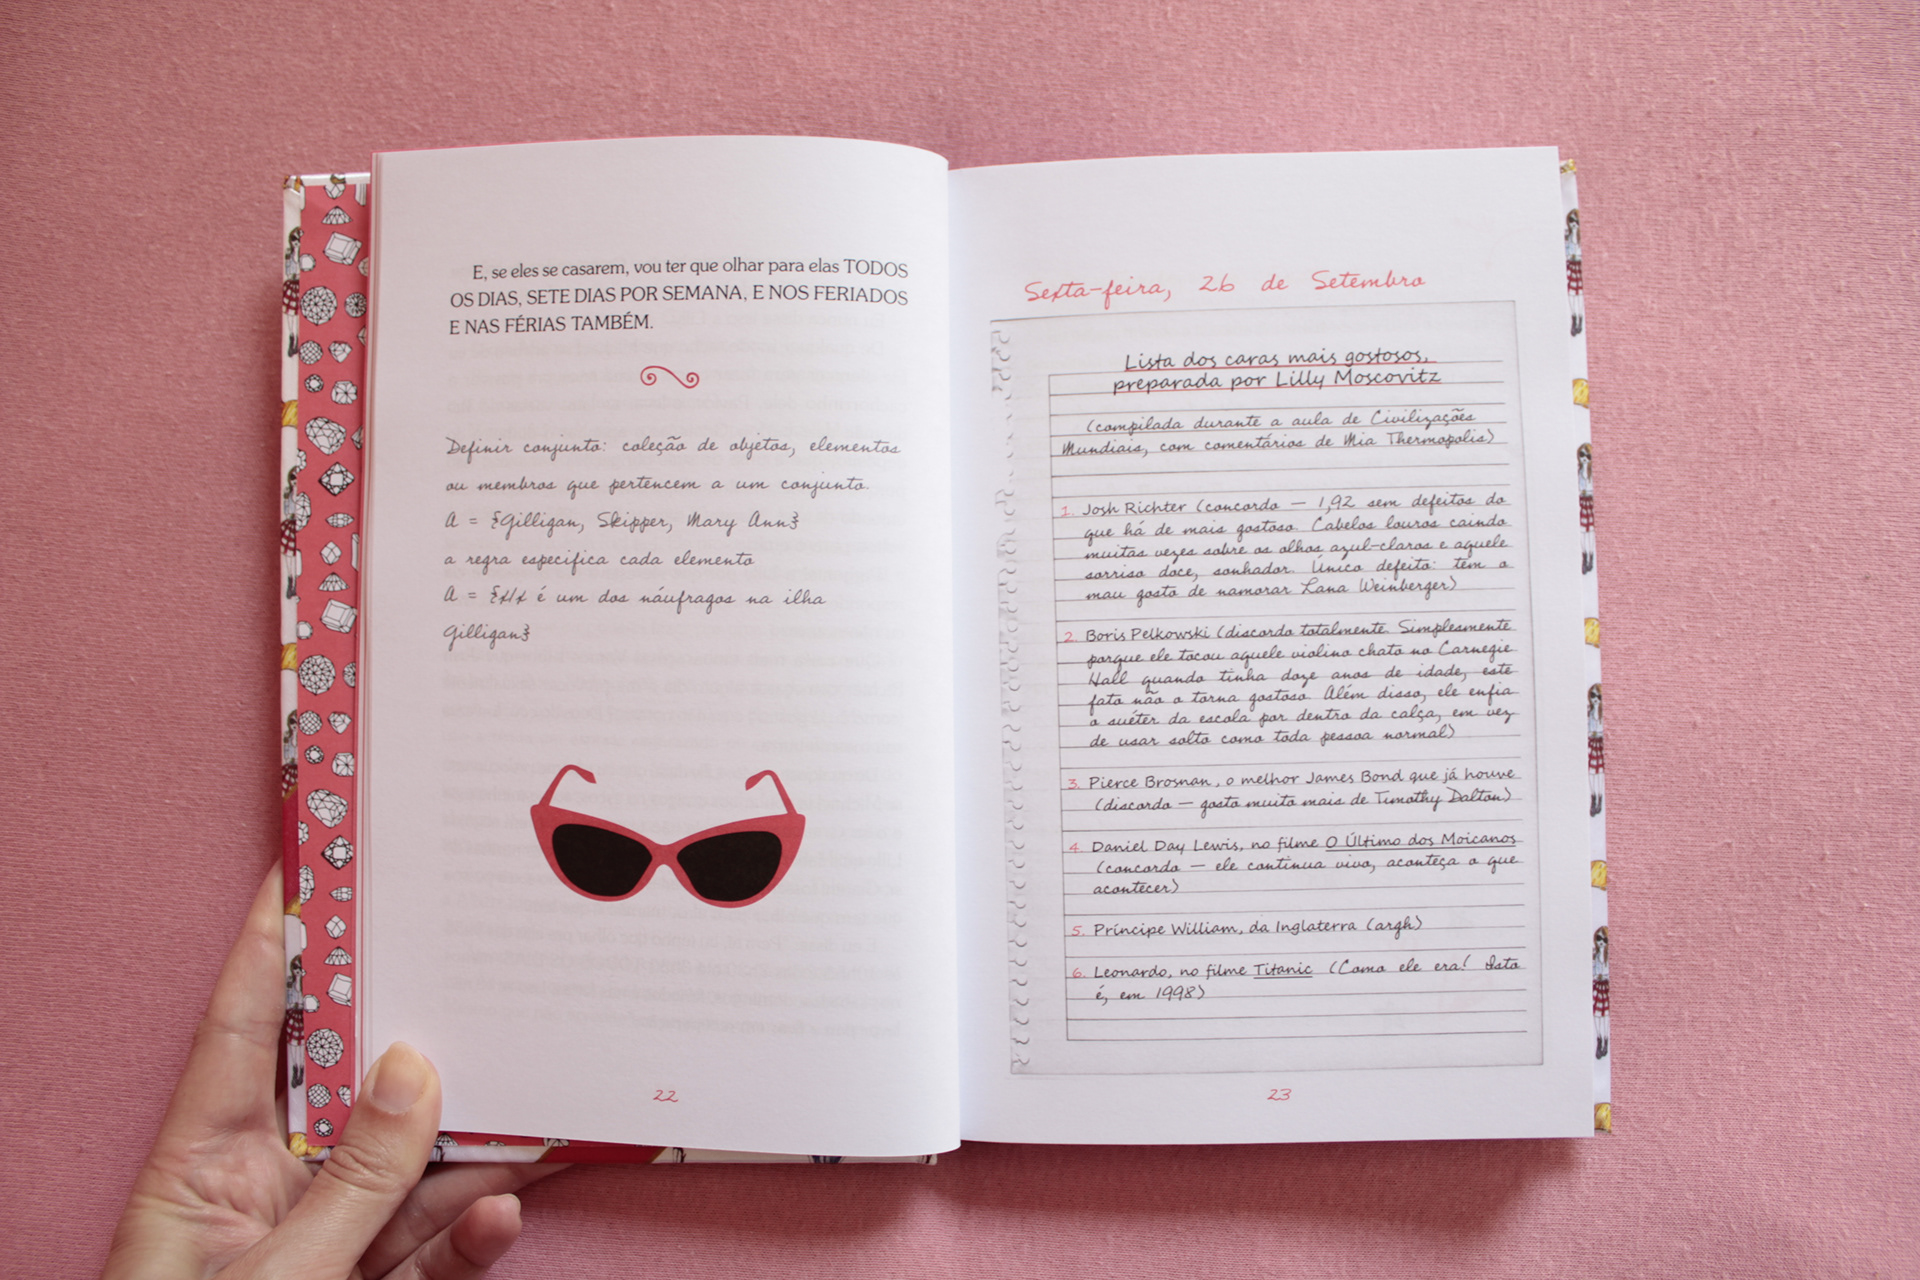 E, se eles se casarem, vou ter que olhar para elas TODOS
OS DIAS, SETE DIAS POR SEMANA, E NOS FERIADOS
E NAS FÉRIAS TAMBÉM.
Definir conjunto: coleção de objetos, elementos
ou membros que pertencem a um conjunto.
A = {Gilligan, Skipper, Mary Ann}
a regra especifica cada elemento
A = {x/x é um dos náufragos na ilha
Gilligan}
22
Sexta-feira, 26 de Setembro
Lista dos caras mais gostosos,
preparada por Lilly Moscovitz
(compilada durante a aula de Civilizações
Mundiais, com comentários de Mia Thermopolis)
1. Josh Richter (concordo — 1,92 sem defeitos do
que há de mais gostoso. Cabelos louros caindo
muitas vezes sobre os olhos azul-claros e aquele
sorriso doce, sonhador. Único defeito: tem o
mau gosto de namorar Lana Weinberger)
2. Boris Pelkowski (discordo totalmente. Simplesmente
porque ele tocou aquele violino chato no Carnegie
Hall quando tinha doze anos de idade, este
fato não o torna gostoso. Além disso, ele enfia
o suéter da escola por dentro da calça, em vez
de usar solto como toda pessoa normal)
3. Pierce Brosnan, o melhor James Bond que já houve
(discordo — gosto muito mais de Timothy Dalton)
4. Daniel Day Lewis, no filme O Último dos Moicanos
(concordo — ele continua vivo, aconteça o que
acontecer)
5. Príncipe William, da Inglaterra (argh)
6. Leonardo, no filme Titanic (Como ele era! Isto
é, em 1998)
23